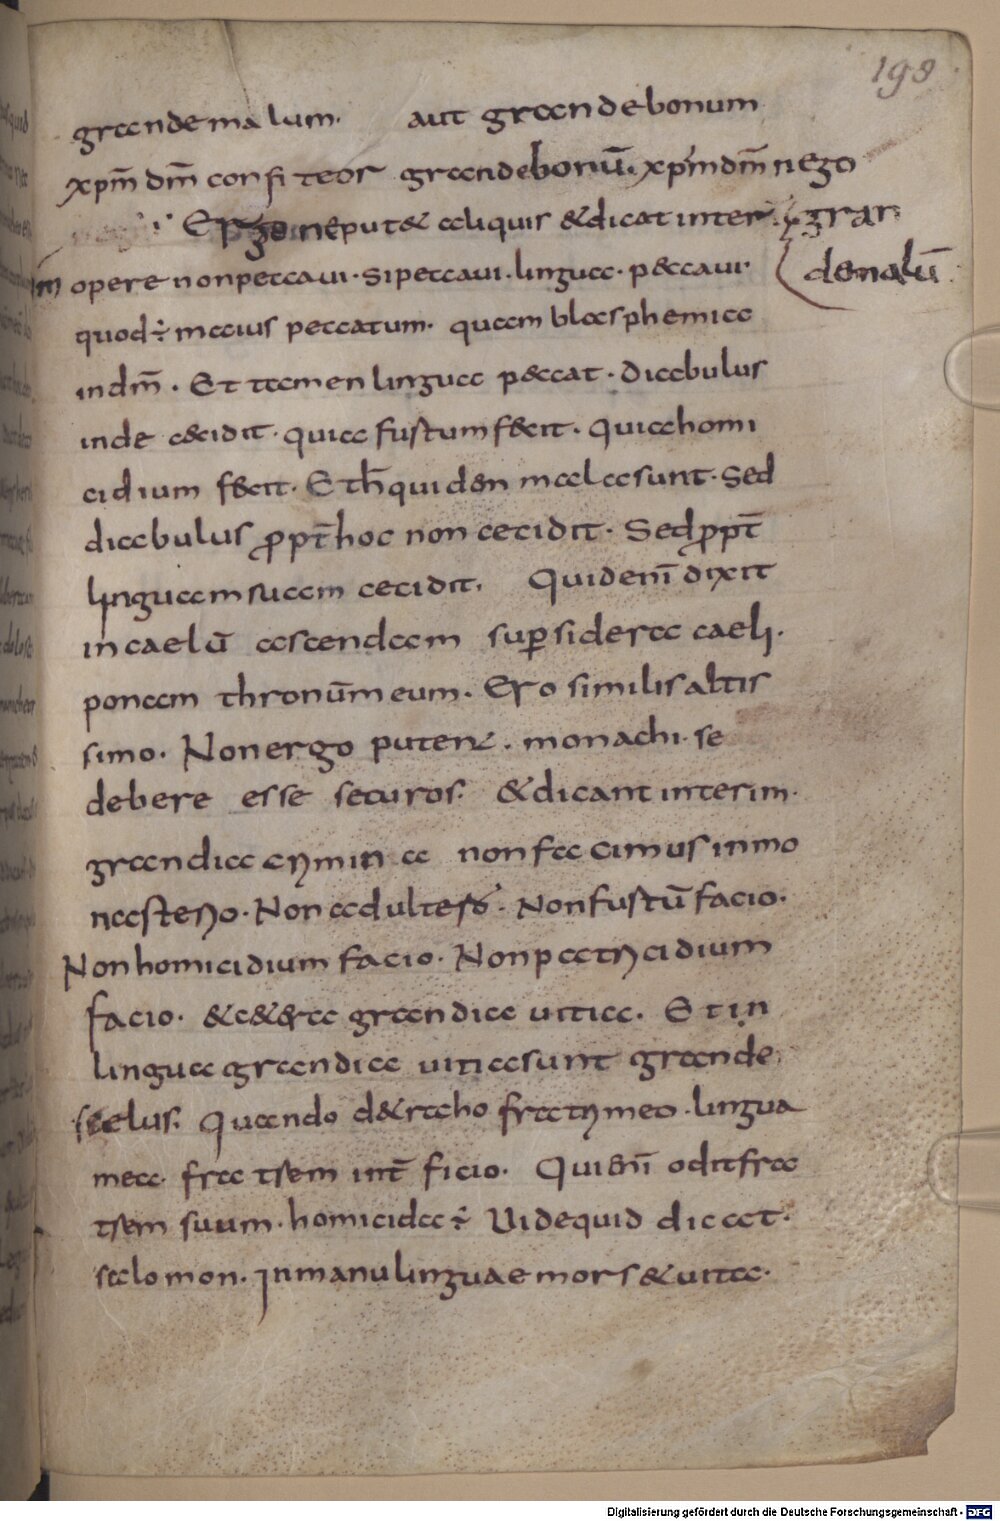 198
grande malum. aut grande bonum
xp̄m dm̄ confiteor grande bonū. xp̄m dm̄ nego
gran
Ergo ne put& aliquis &dicat inter
denalū
opere non peccaui. si peccaui. lingua. p&caui.
quod ÷ maius peccatum. quam blasphemia
in dm̄. Et tamen lingua peccat. diabulus
inde cecidit. quia fustum fecit. quia homi
cidium fecit. Et h̄ quidem mala sunt. sed
diabulus propt̄ hoc non cecidit. Sed propt̄
linguam suam cecidit. Quid enī dixit
in caelū ascendam sup sidera caeli.
ponam thronūmeum. Ero similis altis
simo. Non ergo putent. monachi. se
debere esse securos. &dicant interim.
grandia crimina non facimus in mo
nasterio. Non adultero. Non fustū facio.
Non homicidium facio. Non patricidium
facio. &c&era grandia uitia. Et in
lingua grandia uitia sunt grande
scelus. Quando detraho fratri meo. lingua
mea. fratrem int̄ficio. Qui enī odit fra
trem suum. homicida ÷ Uide quid dicat.
salomon. In manu linguae mors &uita.
Digitalisierung gefördert durch die Deutsche Forschungsgemeinschaft - DFG